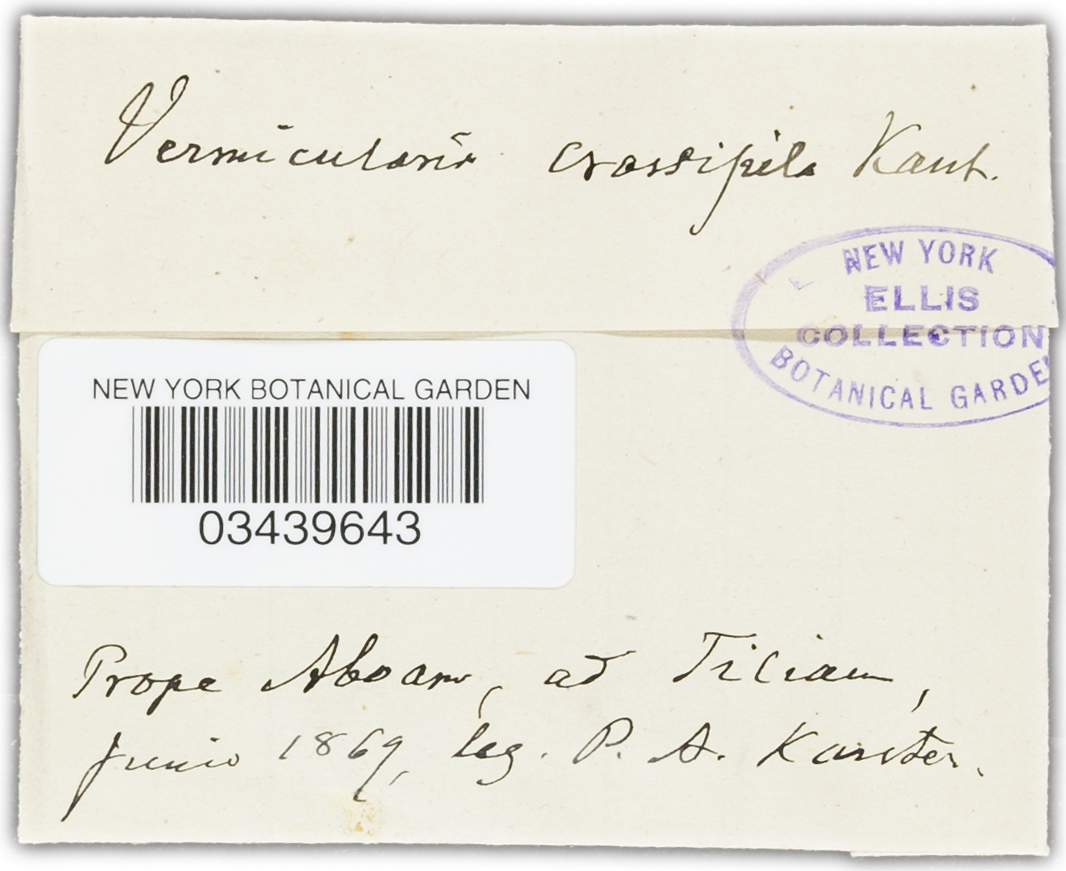 Vermicularia crassipila Karst.
NEW YORK
ELLIS
COLLECTION
BOTANICAL GARDEN
NEW YORK BOTANICAL GARDEN
03439643
Prope Aboam, ad Tiliam,
Junio 1869, leg. P. A. Karsten.